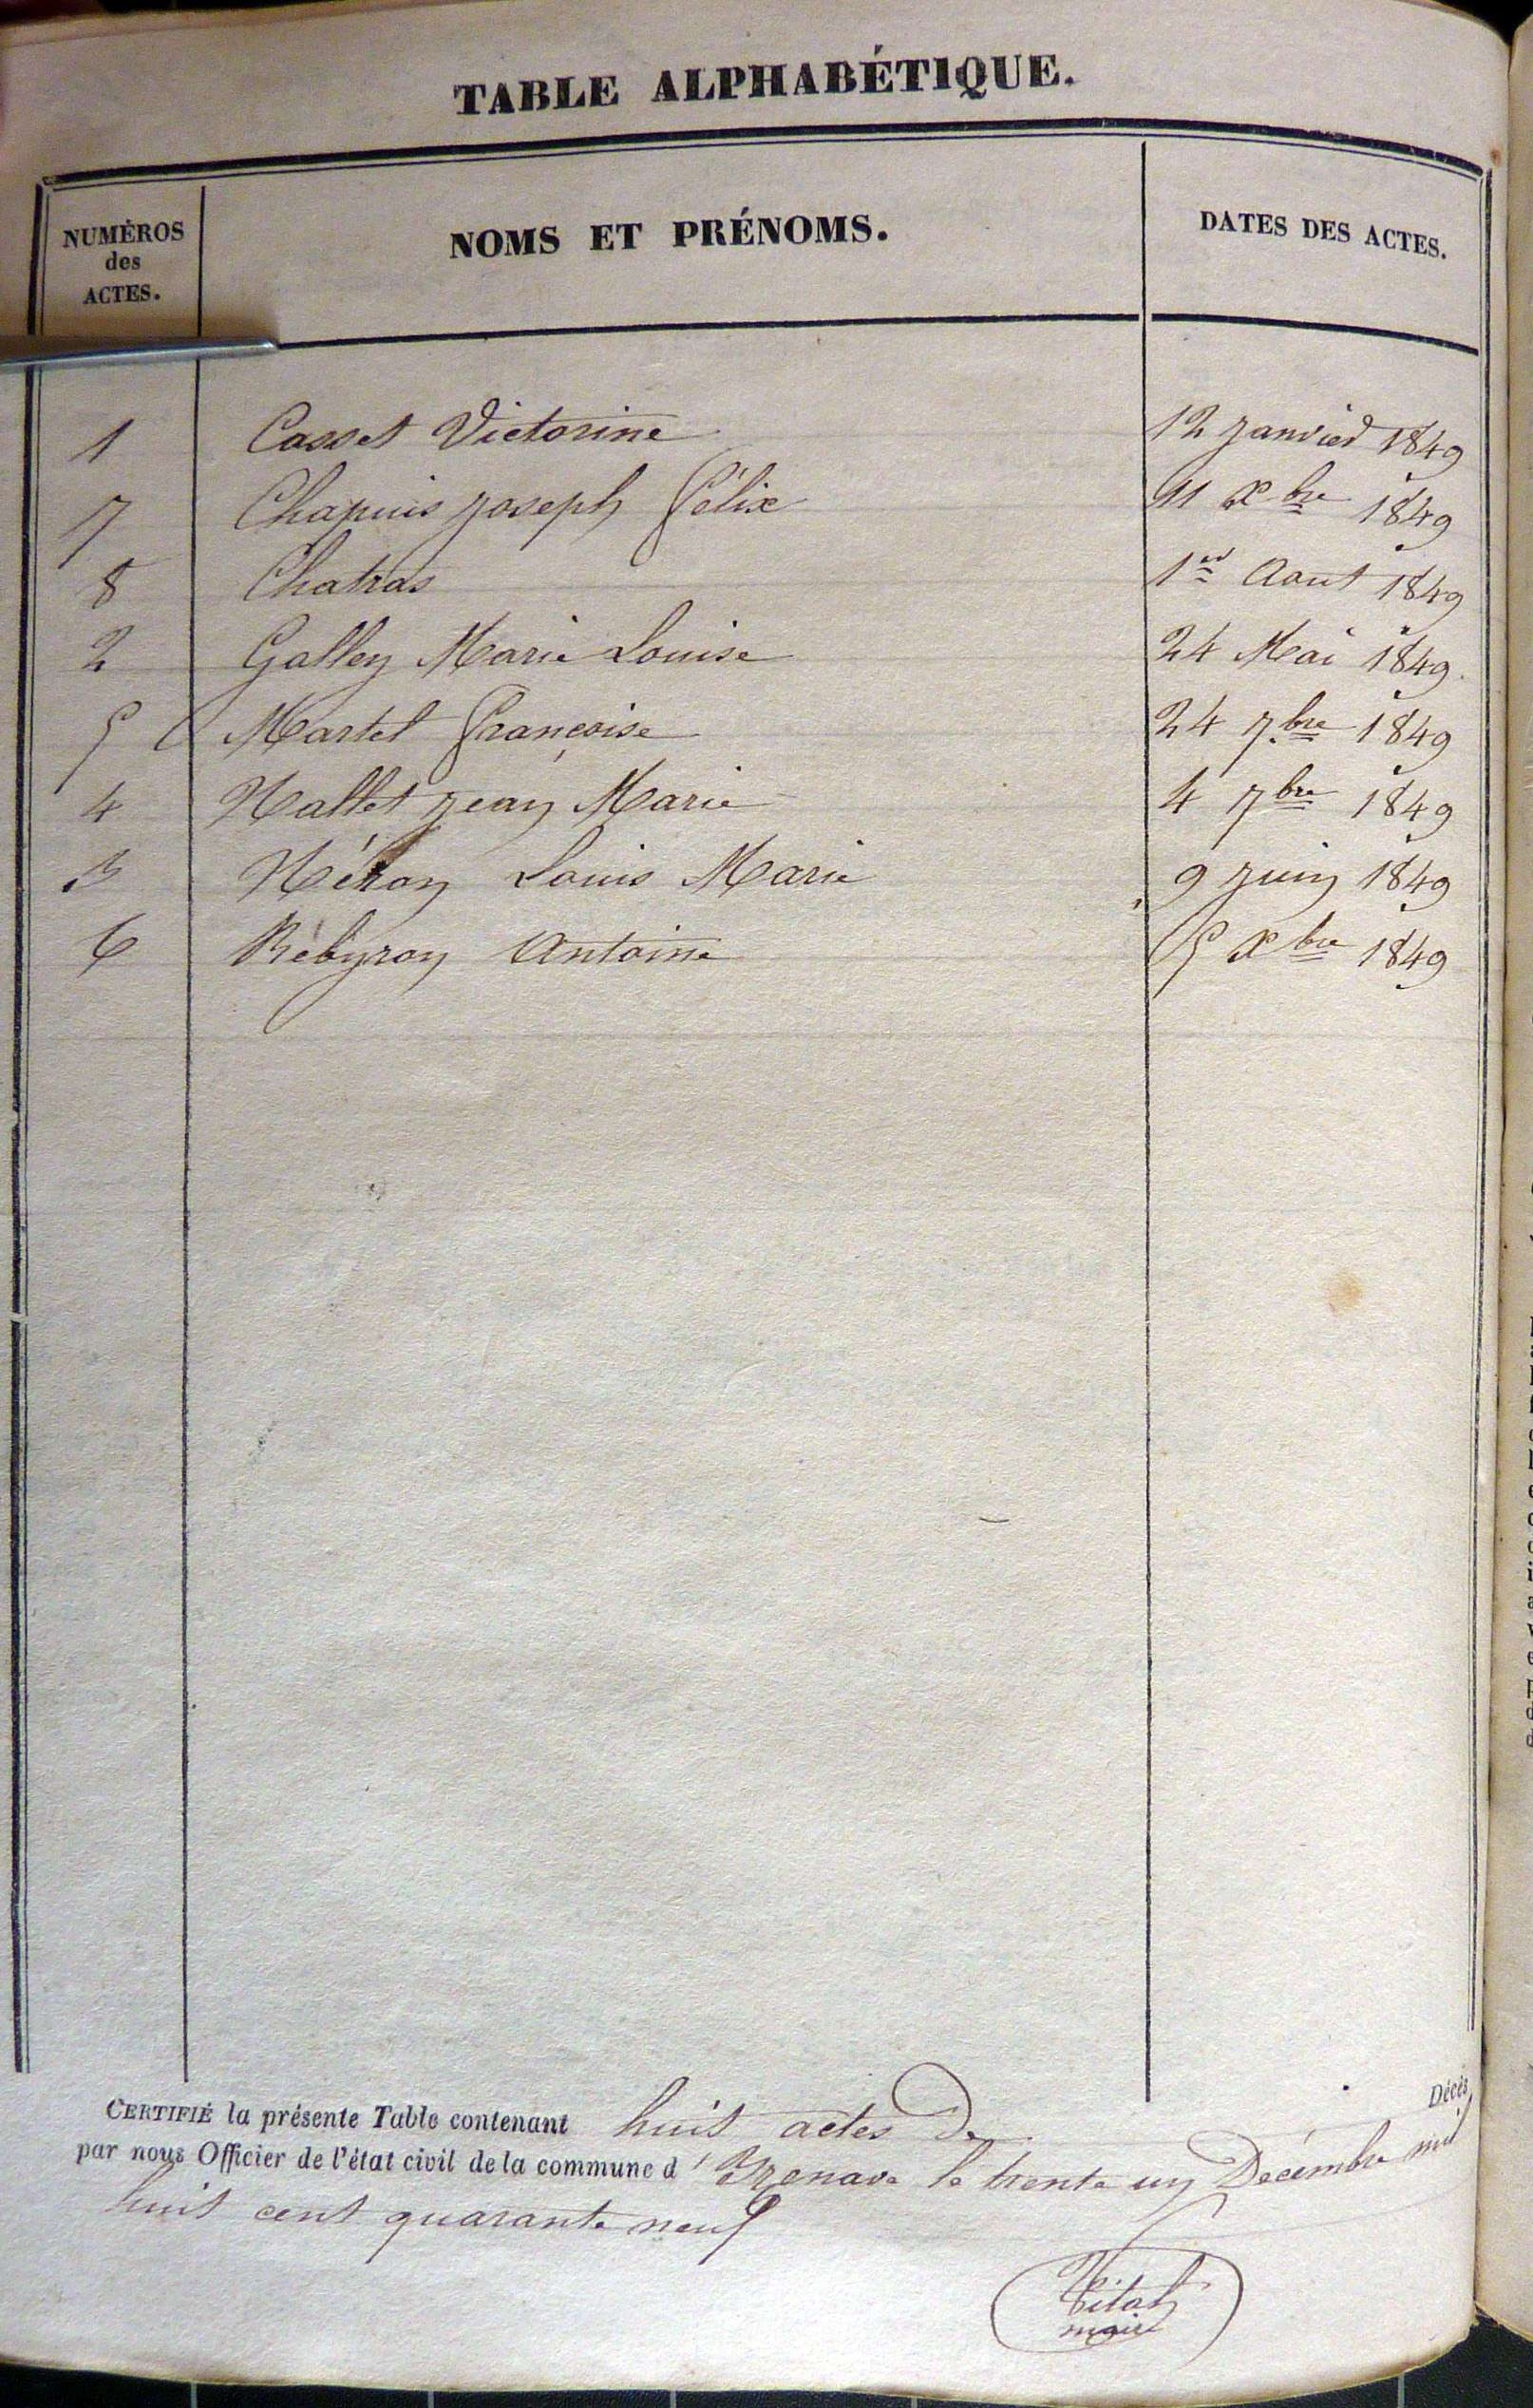 TABLE ALPHABÉTIQUE.
NUMÉROS des ACTES. NOMS ET PRÉNOMS. DATES DES ACTES.
1 Casset Victorine 12 janvier 1849
7 Chapuis joseph Félix 11 Xbre 1849
8 Chatras 1er Aout 1849
2 Galley Marie Louise 24 Mai 1849
5 Martel Françoise 24 7bre 1849
4 Nallet jean Marie 4 7bre 1849
3 Néron Louis Marie 9 juin 1849
6 Rébyron Antoine 5 Xbre 1849
CERTIFIÉ la présente Table contenant huit actes De Décès
par nous Officier de l'état civil de la commune d' Izenave le trente un Décembre mil
huit cent quarante neuf
Vital
maire